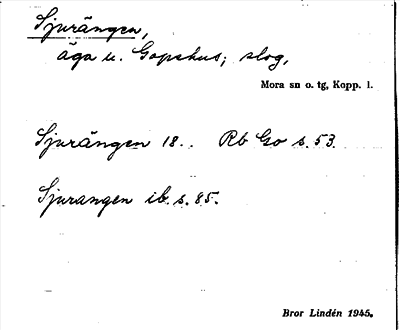 Sjurängen,
äga u. Gopshus; slog,
Mora sn o. tg, Kopp. l.
Sjurängen 18.. Rb Go s. 53.
Sjurangen ib. s. 85.
Bror Lindén 1945.